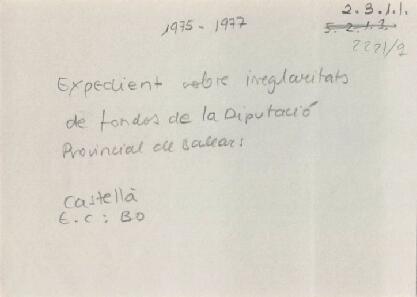 2.3.1.1.
1975-1977
5.2.1.2.
2221/9
Expedient sobre irregularitats
de fondos de la Diputació
Provincial de Balears
Castellà
E.C: BO